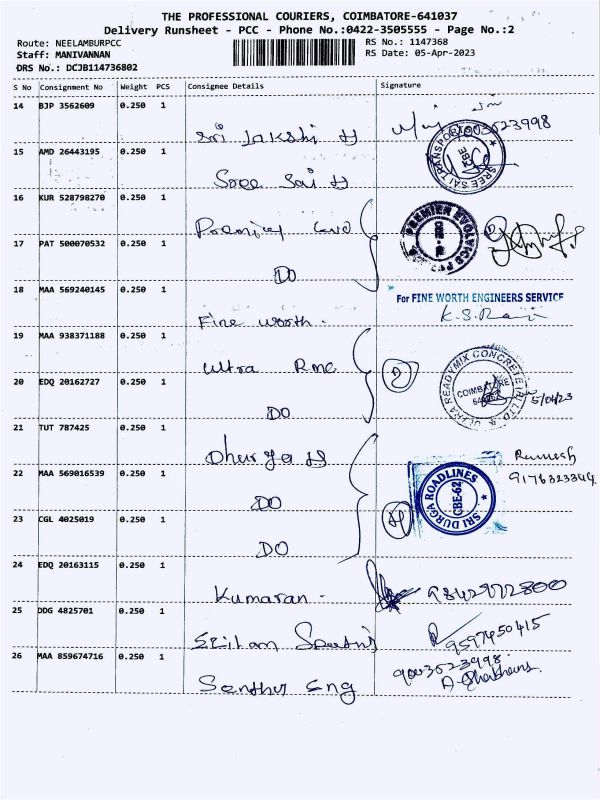 THE PROFESSIONAL COURIERS, COIMBATORE-641037
Delivery Runsheet - PCC - Phone No.:0422-3505555 - Page No.:2
Route: NEELAMBURPCC
Staff: MANIVANNAN
DRS No.: DCJB114736802
RS No.: 1147368
RS Date: 05-Apr-2023
S No Consignment No Weight PCS Consignee Details Signature
14 BJP 3562609 0.250 1
Sri Lakshi H
15 AMD 26443195 0.250 1
Sree Sai H
SREE SAI TRANSPORT
CBE
16 KUR 528798270 0.250 1
PREMIER EVOLVICS
17 PAT 500070532 0.250 1
DO
18 MAA 569240145 0.250 1
Fine worth.
For FINE WORTH ENGINEERS SERVICE
19 MAA 938371188 0.250 1
Ultra Rmc
20 EDQ 20162727 0.250 1
DO
ULTRA READYMIX CONCRETE (P) LTD
COIMBATORE
5/04/23
21 TUT 787425 0.250 1
Dhurga H
22 MAA 569016539 0.250 1
DO
23 CGL 4025019 0.250 1
DO
SRI DURGA ROADLINES
CBE-62
24 EDQ 20163115 0.250 1
Kumaran -
25 DDG 4825701 0.250 1
9597450415
26 MAA 859674716 0.250 1
Senthur Eng
9003523998